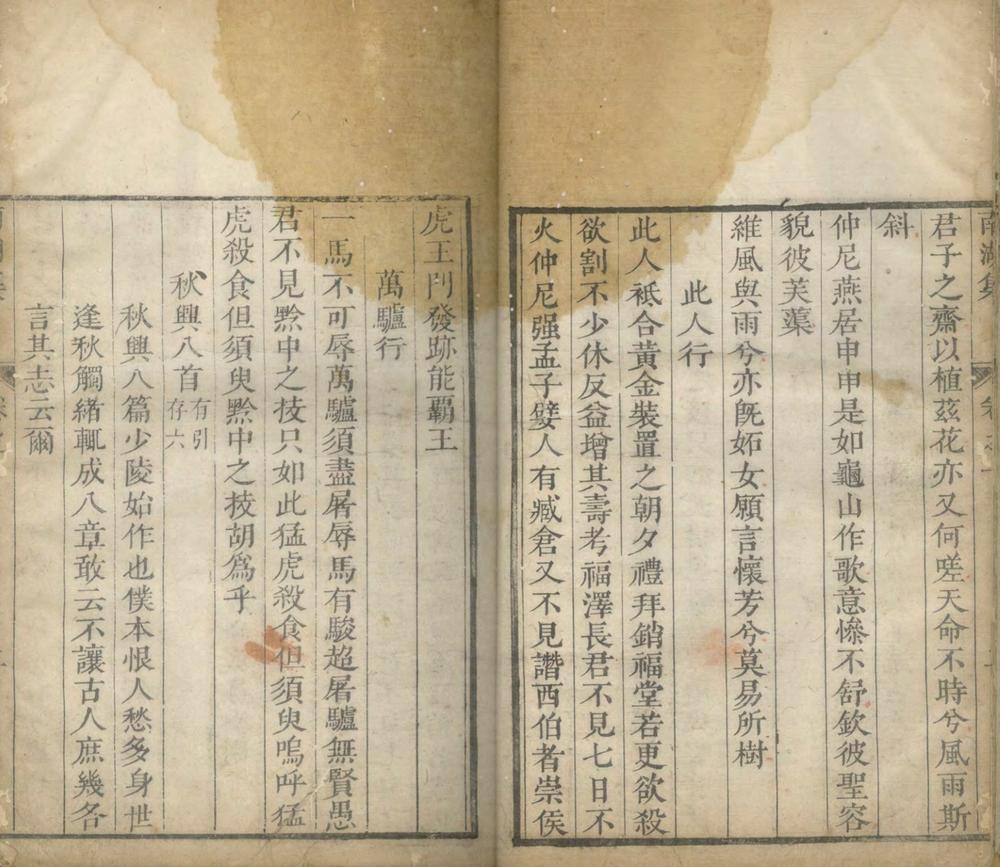 南湖集
君子之齋以植茲花亦又何嗟天命不時兮風雨斯
斜
仲尼燕居申申是如龜山作歌意慘不舒欽彼聖容
貌彼芙蕖
維風與雨兮亦旣妬女願言懷芳兮莫易所樹
此人行
此人祗合黃金裝置之朝夕禮拜銷福堂若更欲殺
欲割不少休反益增其壽考福澤長君不見七日不
火仲尼强孟子嬖人有臧倉又不見譖西伯者崇侯
虎王門發跡能覇王
萬驢行
一馬不可辱萬驢須盡屠辱馬有駿超屠驢無賢愚
君不見黔中之技只如此猛虎殺食但須臾嗚呼猛
虎殺食但須臾黔中之技胡爲乎
秋興八首有引存六
秋興八篇少陵始作也僕本恨人愁多身世
逢秋觸緒輒成八章敢云不讓古人庶幾各
言其志云爾